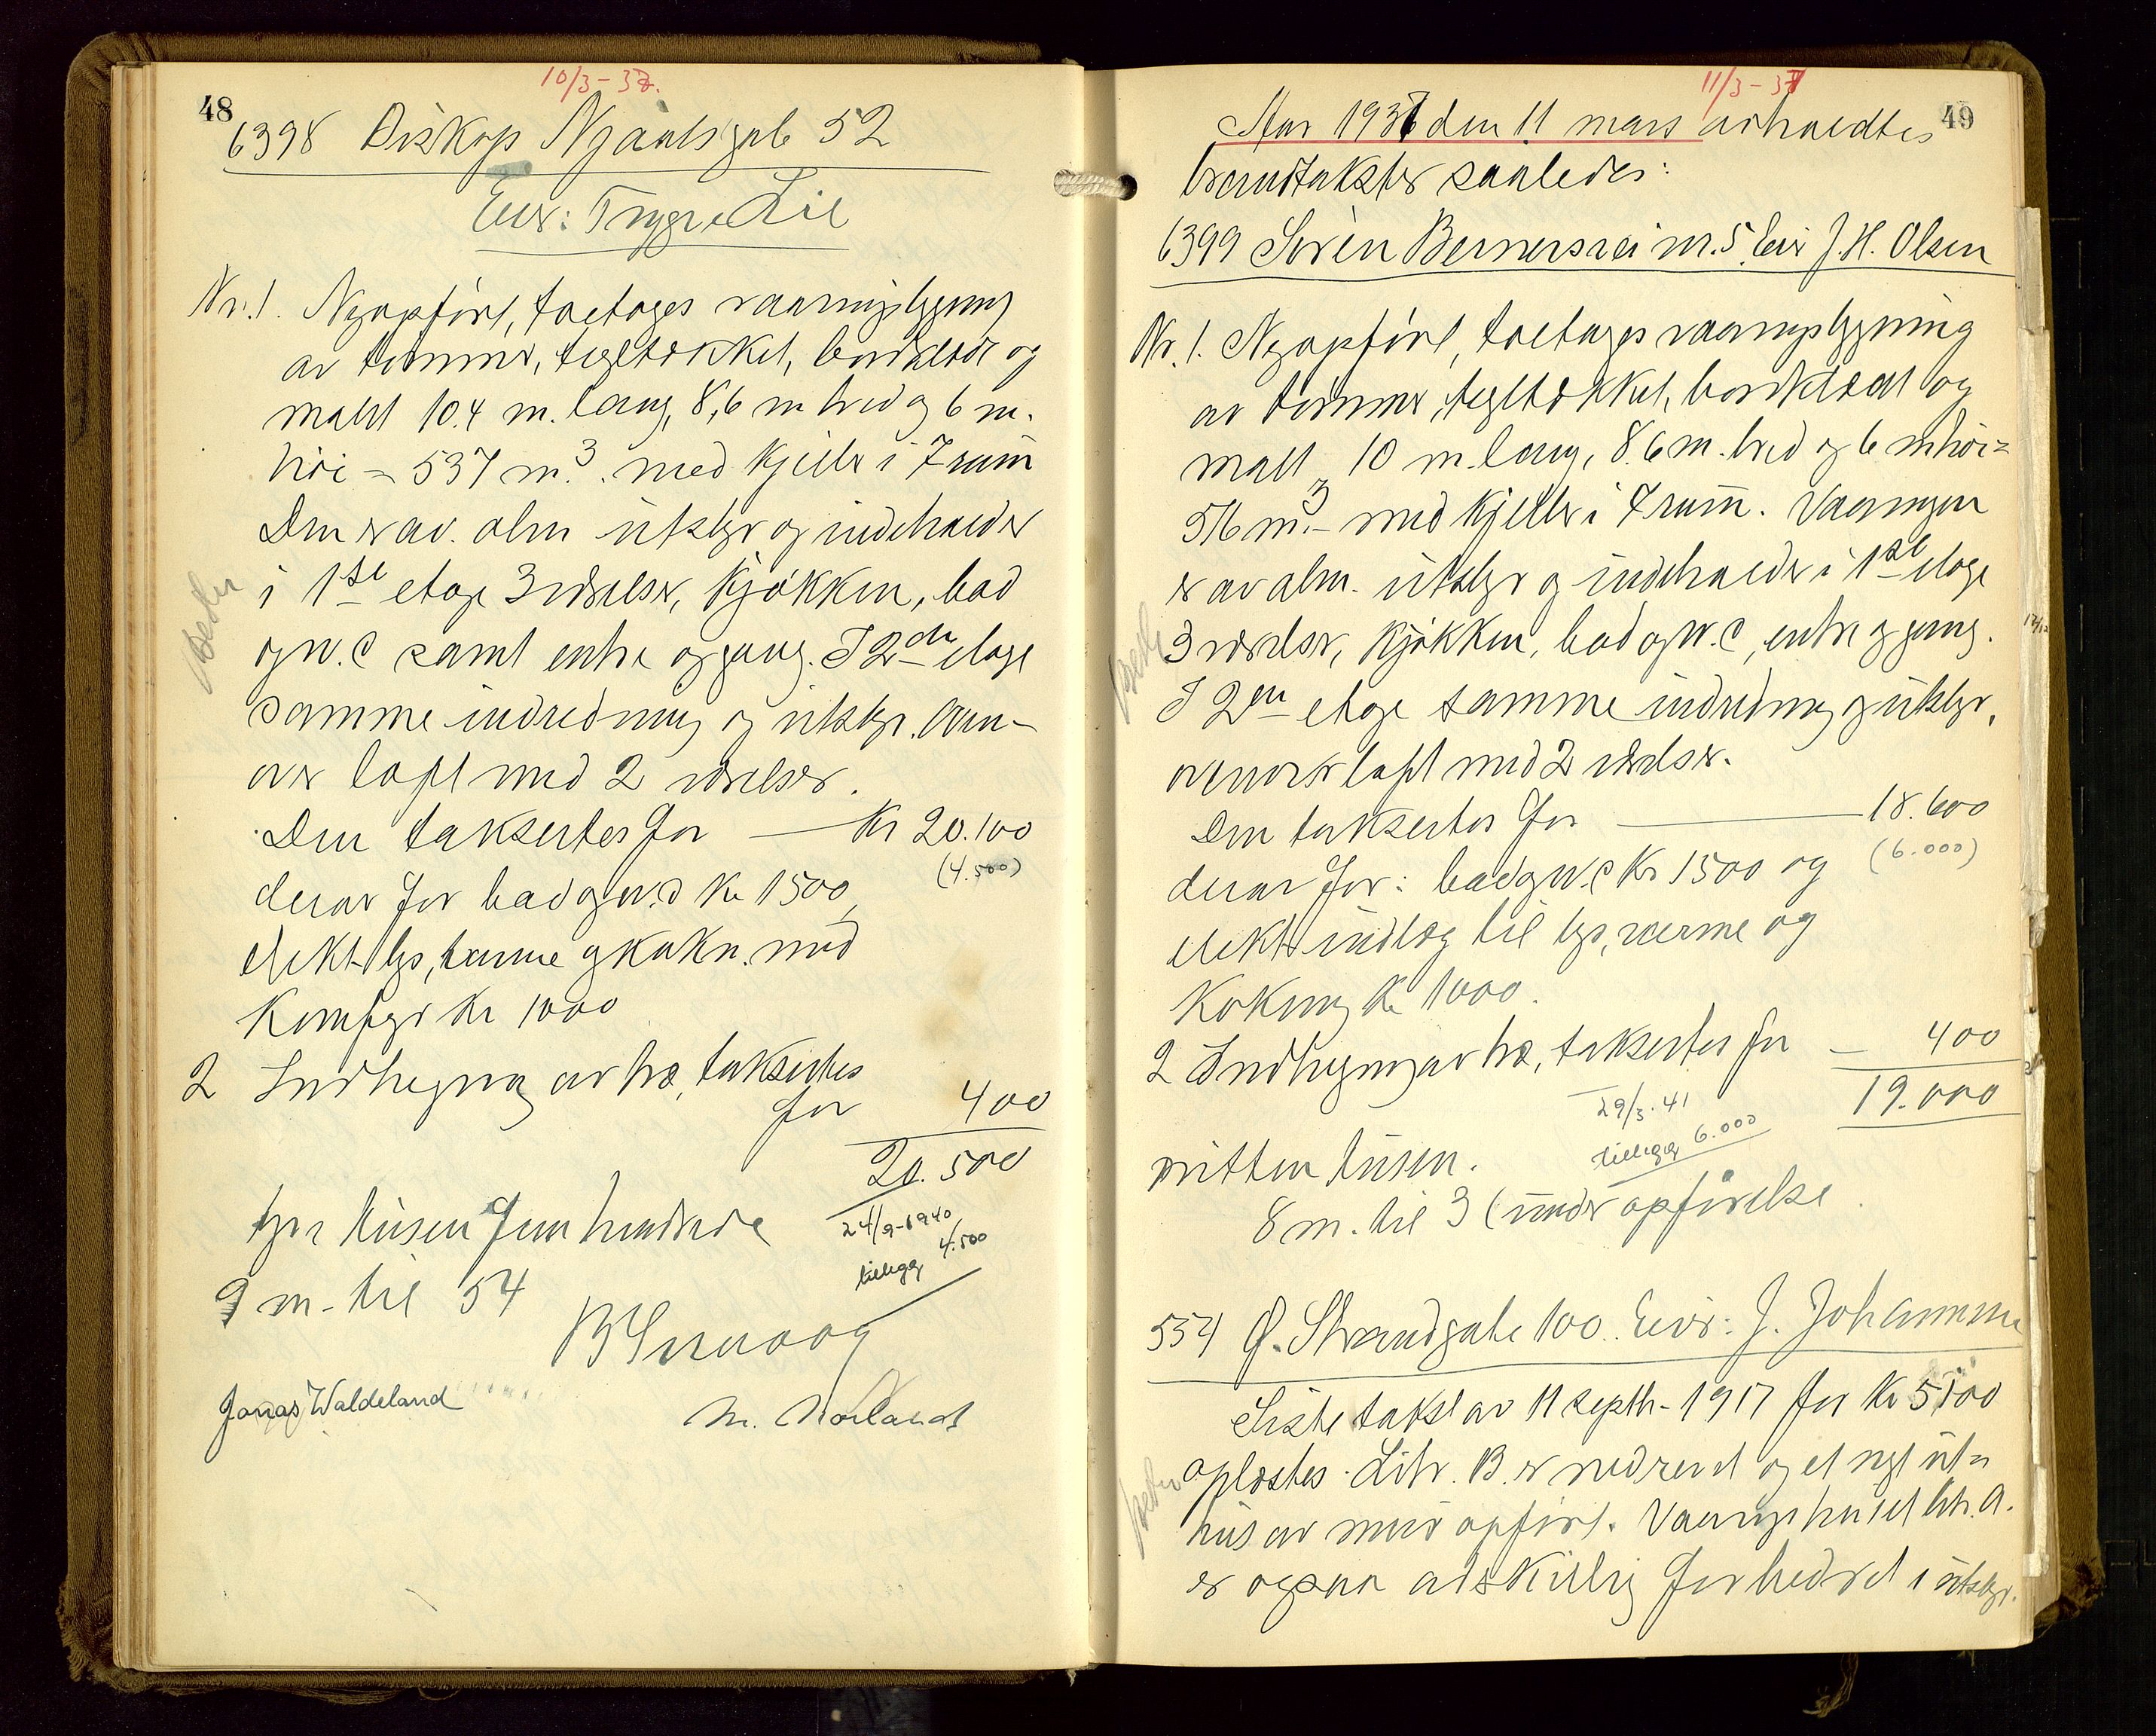 10/3-37.
48
6398 Biskop Njaalsgate 52
Eier: Trygve Lie
Nr. 1. Nyopført, toetages vaaningsbygning
av tømmer, tegltækket, bordklædt og
malt 10.4 m. lang, 8,6 m bred og 6 m.
høi = 537 m³. med kjeller i 7 rum
Den er av. alm utstyr og indeholder
i 1ste etage 3 værelser, kjøkken, bad
og W.C samt entre og gang. I 2den etage
samme indredning og utstyr. Oven-
over loft med 2 værelser.
Den taksertes for — Kr 20.100
(4.500)
derav for bad og w.c Kr 1500,
elekt. lys, varme og kokn. med
Komfyr Kr 1000
2 Indhegning av træ, taksertes
for 400
20.500
tyve tusen fem hundrede
24/9-1940
tillegg 4.500
9 m. til 54
Jonas Waldeland
M. Norland
11/3-37
49
Aar 1937 den 11 mars avholdtes
brandtakster saaledes:
6399 Søren Bernersvei nr. 5. Eier J. H. Olsen
Nr. 1. Nyopført, toetages vaaningsbygning
av tømmer, tegltækket, bordklædt og
malt 10 m. lang, 8.6 m. bred og 6 m høi =
516 m³ - med kjeller i 7 rum. Vaaningen
er av alm. utstyr og indeholder i 1ste etage
3 værelser, kjøkken, bad og W.C, entre og gang.
I 2en etage samme indredning og utstyr,
ovenover loft med 2 værelser.
Den taksertes for — 18.600
(6.000)
derav for: bad og w.c Kr 1500 og
elekt. indlæg til lys, varme og
Kokning Kr 1000.
2 Indhegning av træ, taksertes for — 400
19.000
29/3.41
tillegg 6.000
nitten tusen.
8 m. til 3 (under opførelse.
554 Ø. Strandgate 100. Eier: J. Johannesen
Siste takst av 11 septbr- 1917 for Kr 5100
oplæstes. Litr. B. er nedrevet og et nyt ut-
hus av mur opført. Vaaningshuset litr. A.
er ogsaa adskillig forbedret i utstyr.